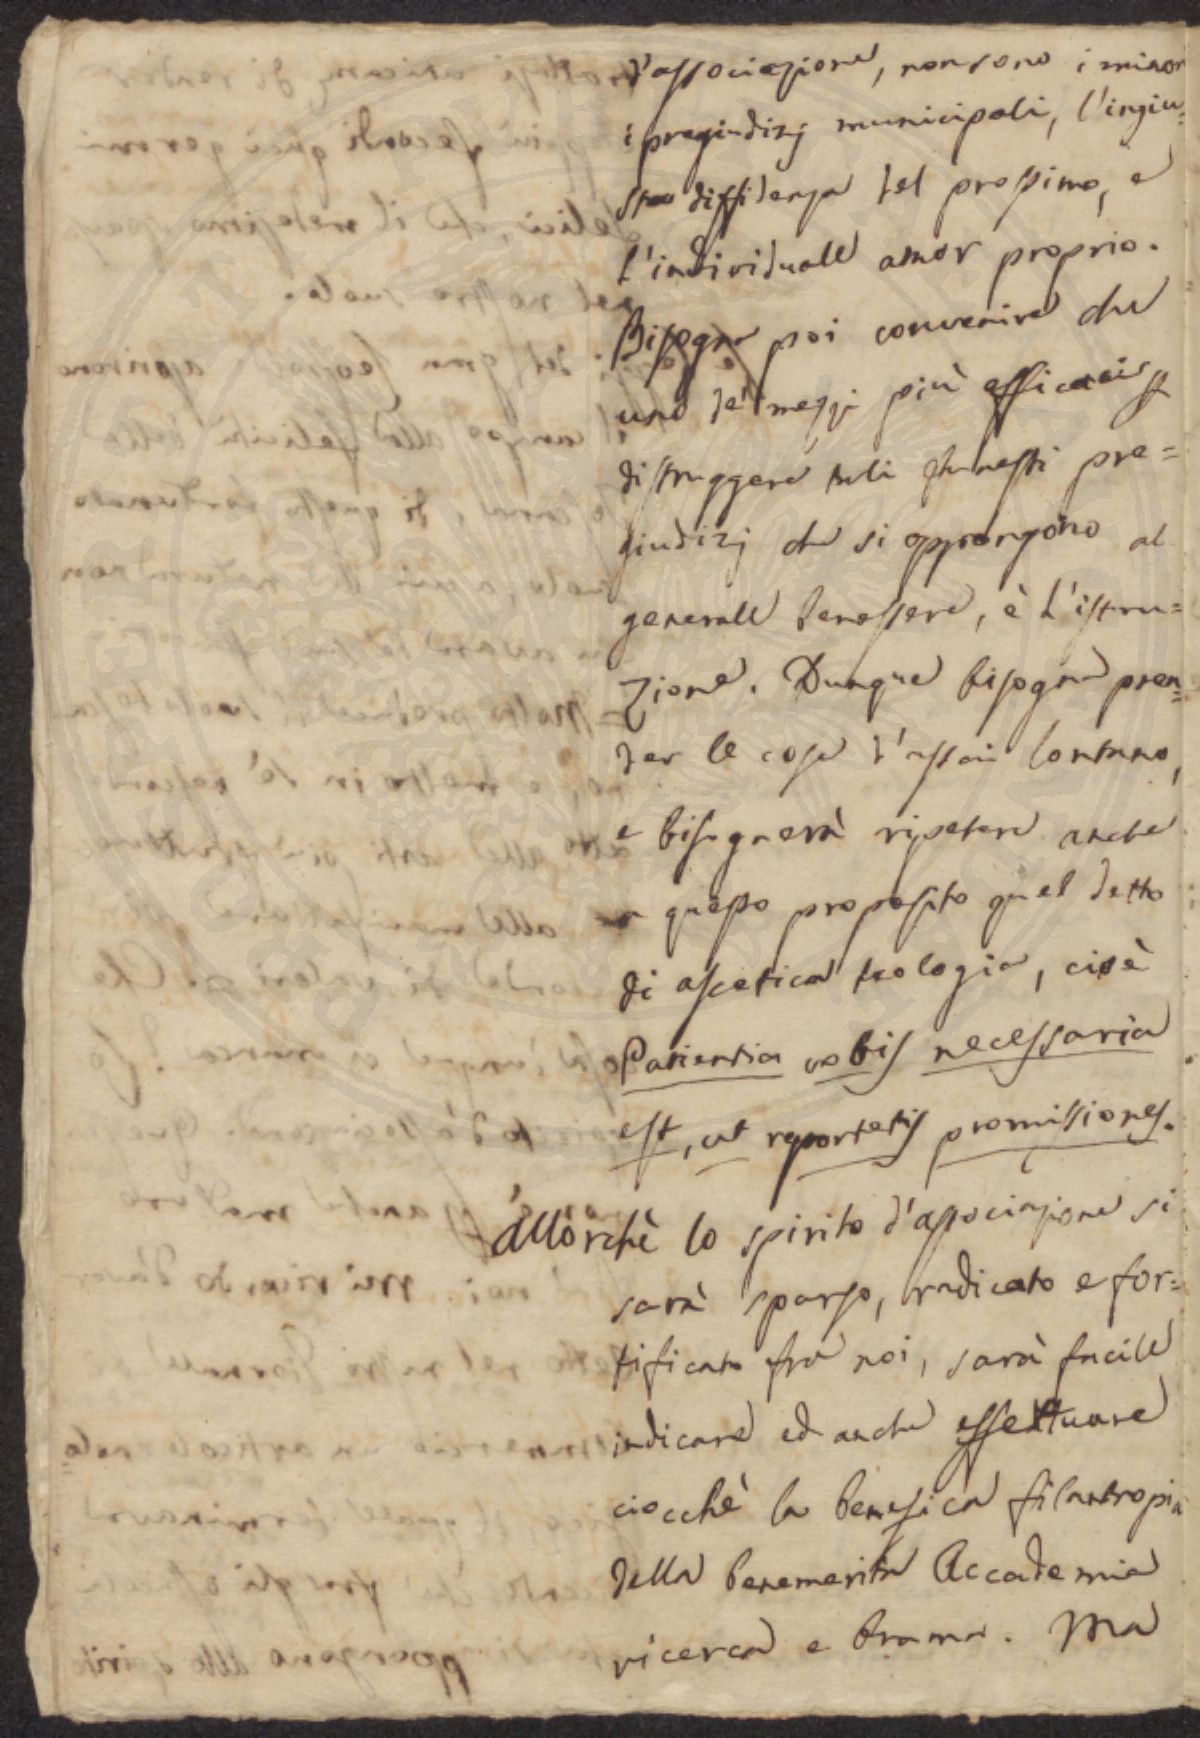 d'associazione, non sono i minori
i pregiudizj municipali, l'ingiu=
sta diffidenza del prossimo, e
l'individuale amor proprio.
Bisogna poi convenire che
uno de' mezzi più efficaci
distruggere tali funesti pre=
giudizj che si oppongono al
generale benessere, è l'istru=
zione. Dunque bisogna pren=
der le cose d'assai lontano,
e bisognerà ripetere anche
a questo proposito quel detto
di ascetica teologia, cioè
Patientia vobis necessaria
est, ut reportetis promissiones.
Allorchè lo spirito d'associazione si
sarà sparso, radicato e for=
tificato fra noi, sarà facile
indicare ed anche effettuare
ciocchè la benefica filantropia
della benemerita Accademia
ricerca e brama. Ma